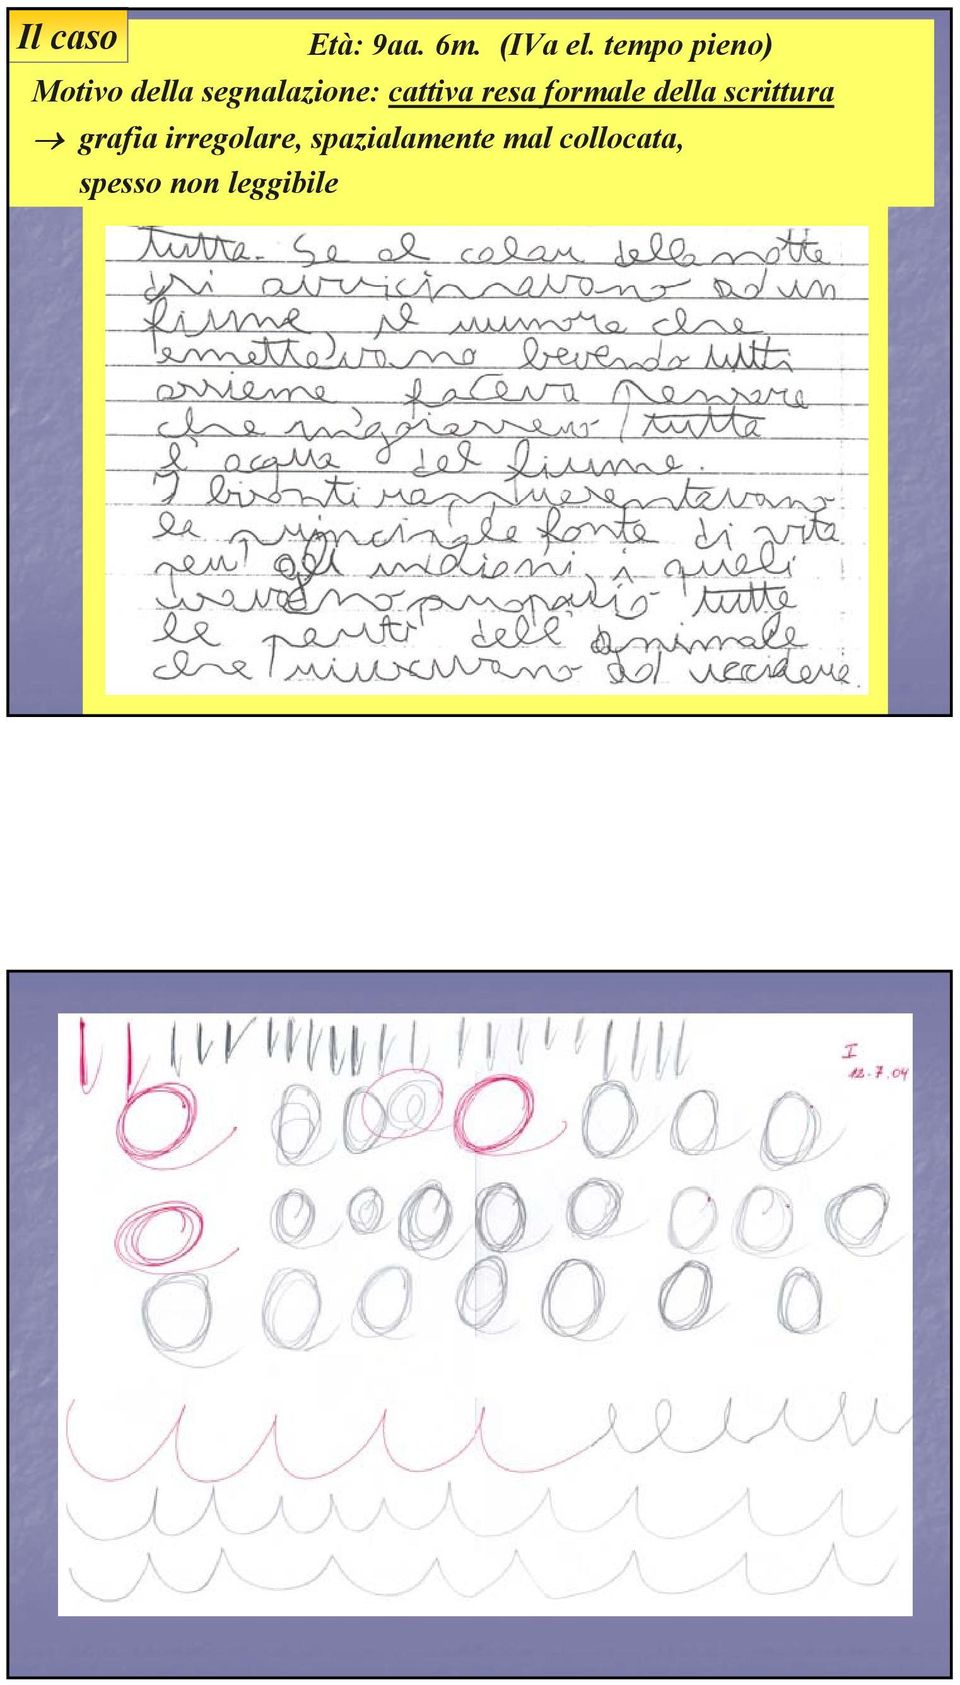 Il caso
Età: 9aa. 6m. (IVa el. tempo pieno)
Motivo della segnalazione: cattiva resa formale della scrittura
→ grafia irregolare, spazialamente mal collocata,
spesso non leggibile
tutta. Se al calar della notte
si avvicinavano ad un
fiume, il rumore che
emettevano bevendo tutti
assieme faceva pensare
che tutta
l'acqua del fiume.
I bisonti rappresentavano
la principale fonte di vita
per gli indiani, i quali
usavano proprio tutte
le parti dell'animale
che riuscivano ad uccidere.
I
12.7.04